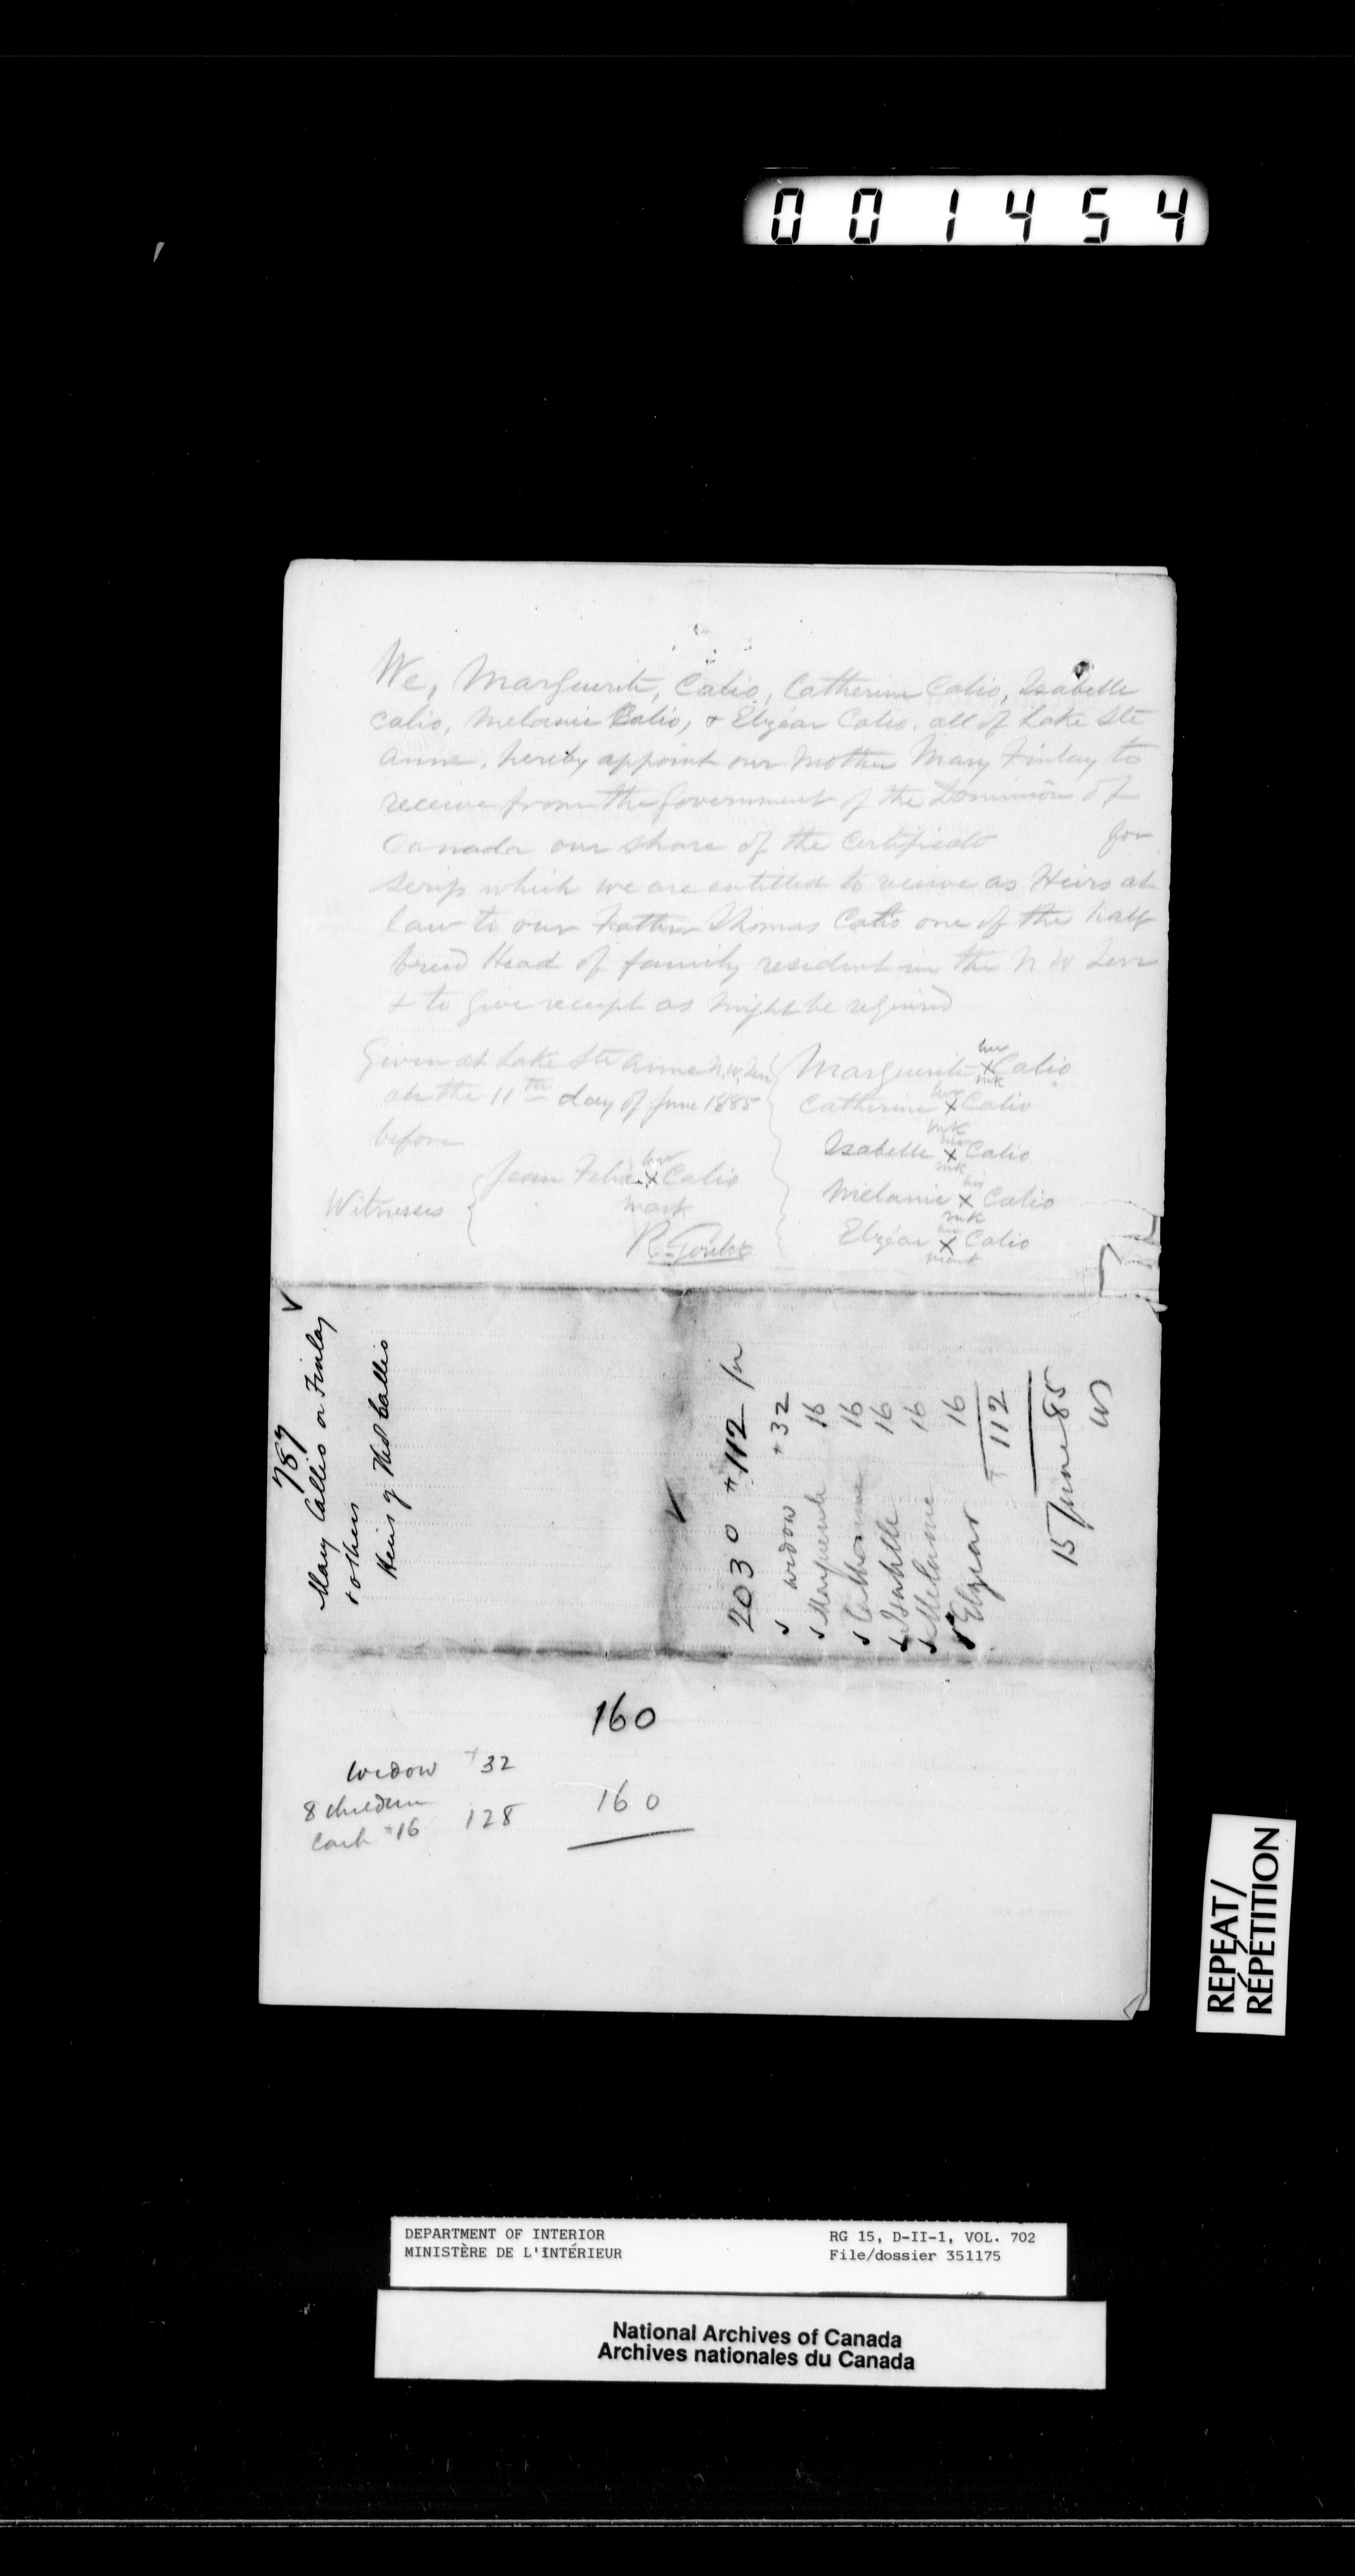 001454
We, Marguerite, Calio, Catherine Calio, Isabelle
Calio, Melanie Calio, & Elzéar Calio, all of Lake Ste
Anne, hereby appoint our Mother Mary Finlay to
receive from the Government of the Dominion of
Canada our share of the Certificate for
Scrip which we are entitled to receive as Heirs at
law to our Father Thomas Calio one of the half
breed Head of family resident in the N W Terr
& to give receipt as might be required
Given at Lake Ste Anne N.W. Terr
on the 11th day of June 1885
before
Marguerite his X mk Calio
Catherine his X mk Calio
Isabelle his X mk Calio
Melanie his X mk Calio
Elzéar his X mark Calio
Witnesses
Jean Felix his X mark Calio
787
Mary Callio or Finlay
& others
Heirs of Thos Callio
2030 $112
widow $32
Marguerite 16
Catherine 16
Isabelle 16
Melanie 16
Elzear 16
112
15 June 85
160
Widow $32
8 children
Each $16 128
160
REPEAT/
RÉPÉTITION
DEPARTMENT OF INTERIOR
MINISTÈRE DE L'INTÉRIEUR
RG 15, D-II-1, VOL. 702
File/dossier 351175
National Archives of Canada
Archives nationales du Canada